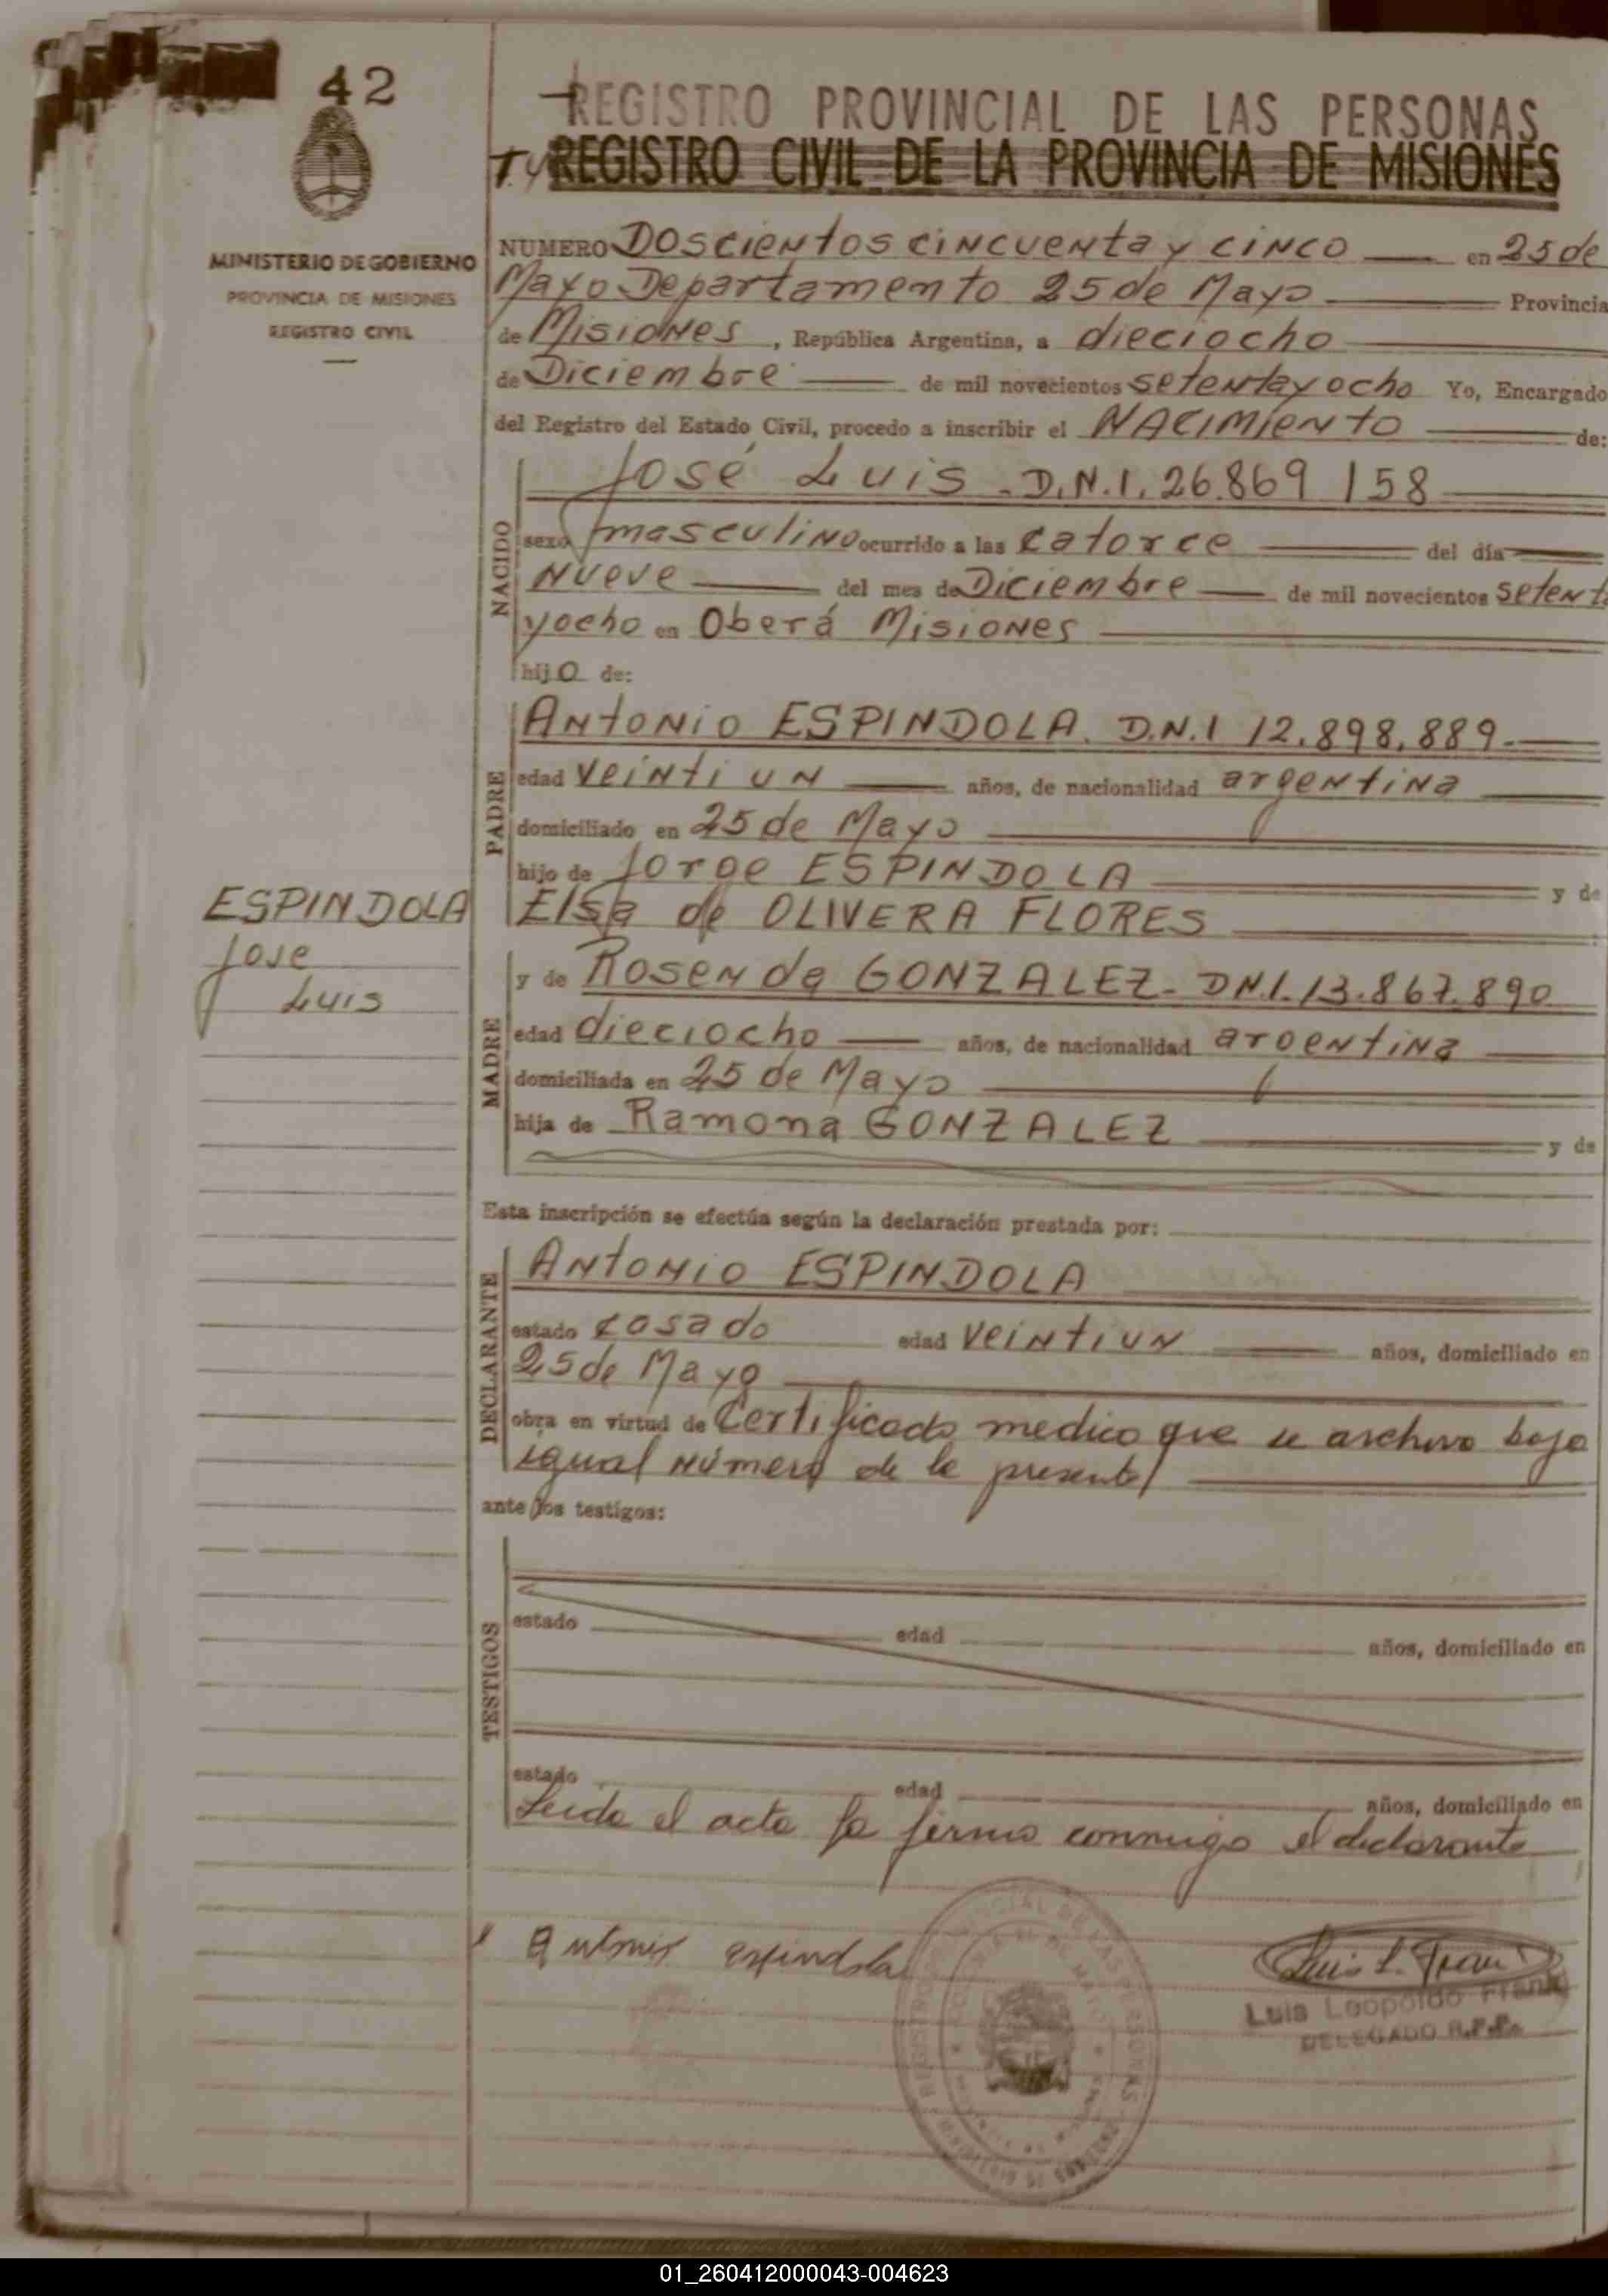 42
REGISTRO PROVINCIAL DE LAS PERSONAS
REGISTRO CIVIL DE LA PROVINCIA DE MISIONES
MINISTERIO DE GOBIERNO
PROVINCIA DE MISIONES
REGISTRO CIVIL
NUMERO Doscientos cincuenta y cinco en 25 de
Mayo Departamento 25 de Mayo Provincia
de Misiones, República Argentina, a dieciocho
de Diciembre de mil novecientos setenta y ocho Yo, Encargado
del Registro del Estado Civil, procedo a inscribir el NACIMIENTO de:
NACIDO
José Luis - D.N.I. 26.869 158
sexo masculino ocurrido a las catorce del día
Nueve del mes de Diciembre de mil novecientos setent
yocho en Oberá Misiones
hijo de:
PADRE
Antonio ESPINDOLA. D.N.I 12.898.889.-
edad veinti un años, de nacionalidad argentina
domiciliado en 25 de Mayo
hijo de Jorge ESPINDOLA y de
Elsa de OLIVERA FLORES
ESPINDOLA
Jose
Luis
MADRE
y de Rosenda GONZALEZ - DN.I. 13.867.890
edad dieciocho años, de nacionalidad argentina
domiciliada en 25 de Mayo
hija de Ramona GONZALEZ y de
Esta inscripción se efectúa según la declaración prestada por:
DECLARANTE
Antonio ESPINDOLA
estado casado edad veintiun años, domiciliado en
25 de Mayo
obra en virtud de Certificado medico que se archivo bajo
igual número de la presente
ante los testigos:
TESTIGOS
estado edad años, domiciliado en
estado edad años, domiciliado en
Leida el acta la firma conmigo el declarante
Antonio espindola
Luis L. Frank
Luis Leopoldo Frank
DELEGADO R.P.P.
01_260412000043-004623